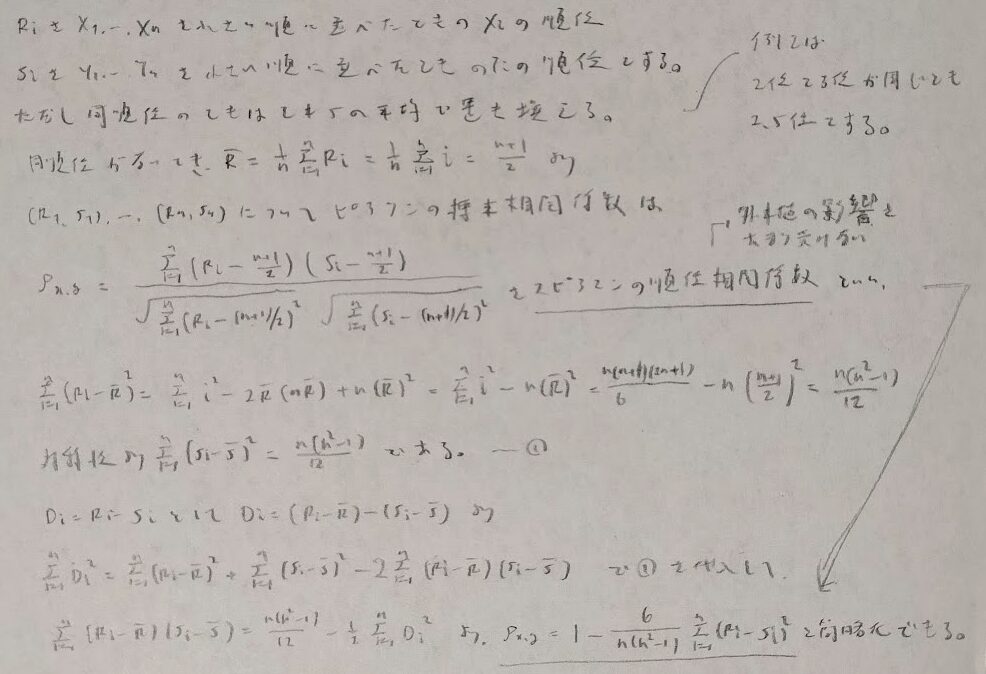 Riを X1,…,Xn を小さい順に並べたときの Xiの順位
Siを Y1,…Yn を小さい順に並べたときのYiの順位とする。
ただし同順位のときはそれらの平均で置き換える。
例えば
2位と3位が同じとき
2.5位とする。
同順位がないとき、R̄ = 1/n Σ_{i=1}^{n} Ri = 1/n Σ_{i=1}^{n} i = (n+1)/2 より
(R1,S1),…,(Rn,Sn) について ピアソンの標本相関係数は
外れ値の影響を
大きく受けない
ρx,y = Σ_{i=1}^{n} (Ri − (n+1)/2) (Si − (n+1)/2) / √(Σ_{i=1}^{n} (Ri − (n+1)/2)²) √(Σ_{i=1}^{n} (Si − (n+1)/2)²) をスピアマンの順位相関係数といい、
Σ_{i=1}^{n} (Ri−R̄)² = Σ_{i=1}^{n} i² − 2R̄(nR̄) + n(R̄)² = Σ_{i=1}^{n} i² − n(R̄)² = n(n+1)(2n+1)/6 − n((n+1)/2)² = n(n²−1)/12
対称性より Σ_{i=1}^{n} (Si−S̄)² = n(n²−1)/12 である。 —①
Di = Ri−Si として Di = (Ri−R̄)−(Si−S̄) より
Σ_{i=1}^{n} Di² = Σ_{i=1}^{n} (Ri−R̄)² + Σ_{i=1}^{n} (Si−S̄)² − 2Σ_{i=1}^{n} (Ri−R̄)(Si−S̄) で①を代入して、
Σ_{i=1}^{n} (Ri−R̄)(Si−S̄) = n(n²−1)/12 − 1/2 Σ_{i=1}^{n} Di² より、ρx,y = 1 − 6/(n(n²−1)) Σ_{i=1}^{n} (Ri−Si)² と簡略化できる。